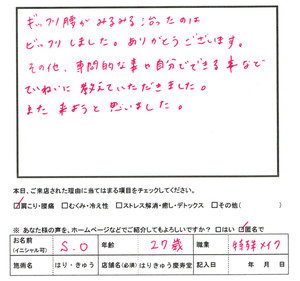 ギックリ腰がみるみる治ったのは
ビックリしました。ありがとうございます。
その他、専門的な事や自分でできる事など
ていねいに教えていただきました。
また来ようと思いました。
本日、ご来店された理由に当てはまる項目をチェックしてください。
☑肩こり・腰痛 □むくみ・冷え性 □ストレス解消・癒し・デトックス □その他( )
※ あなた様の声を、ホームページなどでご紹介してもよろしいですか? □はい ☑匿名で
お名前 (イニシャル可) S.O 年齢 27歳 職業 特殊メイク
施術名 はり・きゅう 店舗名(必須) はりきゅう慶寿堂 記入日 年 月 日